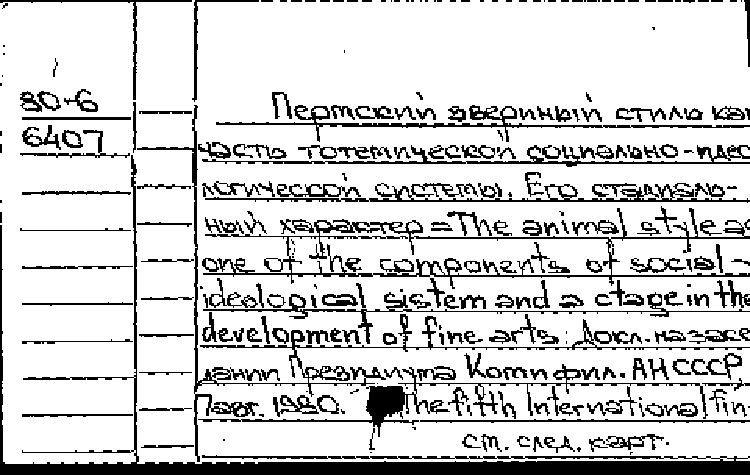 80-6
6407
Пермский звериный стиль как
часть тотемической социально-идео
логической системы. Его стадиаль-
ный характер = The animal style as
one of the components of social-
ideological sistem and a ctage in the
development of fine arts: Докл. на засе
дании Президиума Коми фил. АН СССР,
7 авг. 1980. The fifth International fin-
ст. след. карт.